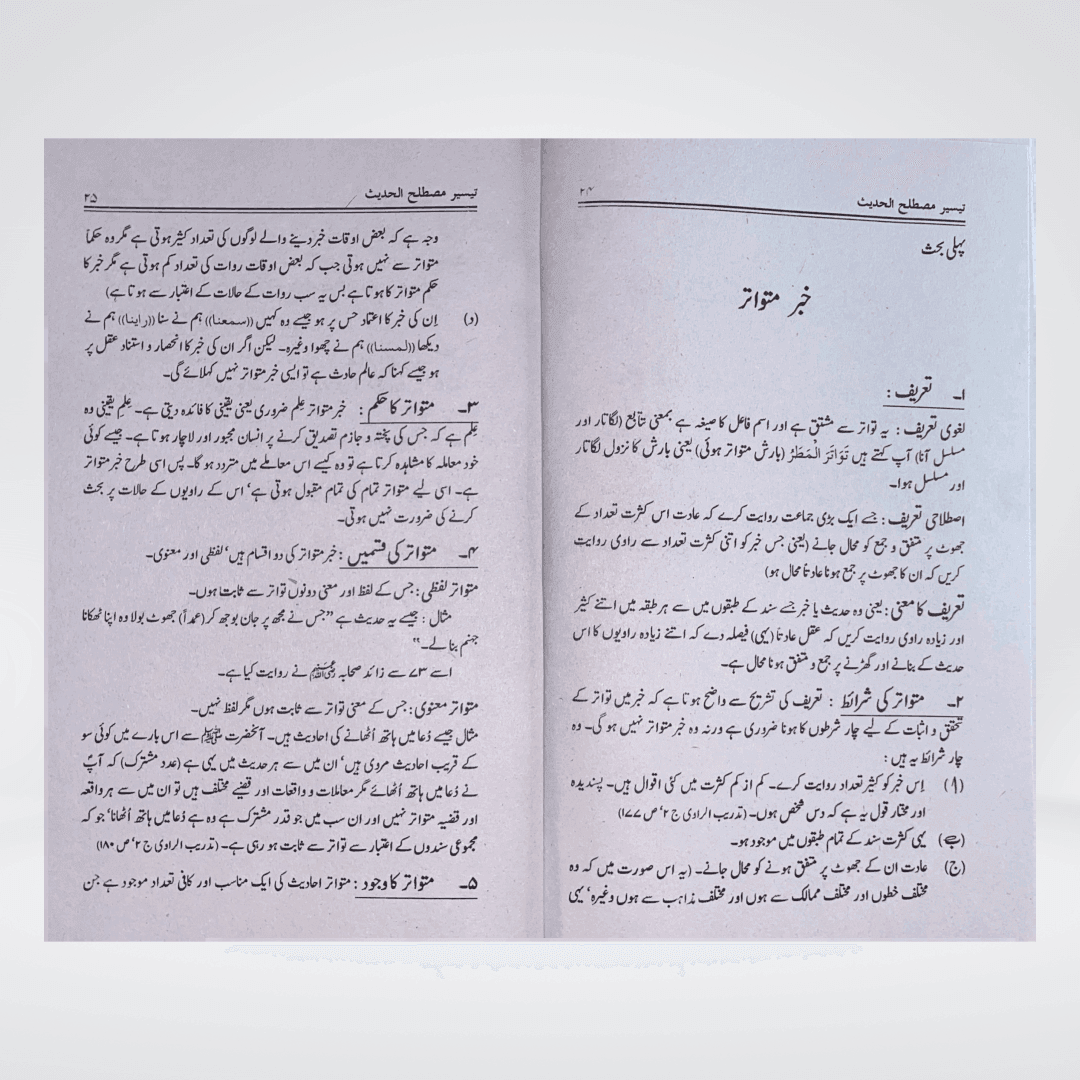 تیسیر مصطلح الحدیث ۲۴
پہلی بحث
خبر متواتر
۱۔ تعریف :
لغوی تعریف : یہ تواتر سے مشتق ہے اور اسم فاعل کا صیغہ ہے بمعنی تتابع (لگاتار اور
مسلسل آنا) آپ کہتے ہیں تَوَاتَرَ الْمَطَرُ (بارش متواتر ہوئی) یعنی بارش کا نزول لگاتار
اور مسلسل ہوا۔
اصطلاحی تعریف : جسے ایک بڑی جماعت روایت کرے کہ عادت اس کثرت تعداد کے
جھوٹ پر متفق و جمع کو محال جانے (یعنی جس خبر کو اتنی کثرت تعداد سے راوی روایت
کریں کہ ان کا جھوٹ پر جمع ہونا عادتاً محال ہو)
تعریف کا معنی : یعنی وہ حدیث یا خبر جسے سند کے طبقوں میں سے ہر طبقہ میں اتنے کثیر
اور زیادہ راوی روایت کریں کہ عقل عادتاً (یہی) فیصلہ دے کہ اتنے زیادہ راویوں کا اس
حدیث کے بنانے اور گھڑنے پر جمع و متفق ہونا محال ہے۔
۲۔ متواتر کی شرائط : تعریف کی تشریح سے واضح ہوتا ہے کہ خبر میں تواتر کے
تحقق و اثبات کے لیے چار شرطوں کا ہونا ضروری ہے ورنہ وہ خبر متواتر نہیں ہو گی۔ وہ
چار شرائط یہ ہیں :
(ا) اِس خبر کو کثیر تعداد روایت کرے۔ کم از کم کثرت میں کئی اقوال ہیں۔ پسندیدہ
اور مختار قول یہ ہے کہ دس شخص ہوں۔ (تدریب الراوی ج ۲‘ ص ۱۷۷)
(ب) یہی کثرت سند کے تمام طبقوں میں موجود ہو۔
(ج) عادت ان کے جھوٹ پر متفق ہونے کو محال جانے۔ (یہ اس صورت میں کہ وہ
مختلف خطوں اور مختلف ممالک سے ہوں اور مختلف مذاہب سے ہوں وغیرہ‘ یہی
تیسیر مصطلح الحدیث ۲۵
وجہ ہے کہ بعض اوقات خبر دینے والے لوگوں کی تعداد کثیر ہوتی ہے مگر وہ حکماً
متواتر سے نہیں ہوتی جب کہ بعض اوقات روات کی تعداد کم ہوتی ہے مگر خبر کا
حکم متواتر کا ہوتا ہے بس یہ سب روات کے حالات کے اعتبار سے ہوتا ہے)
(د) اِن کی خبر کا اعتماد حس پر ہو جیسے وہ کہیں ((سمعنا)) ہم نے سنا ((راینا)) ہم نے
دیکھا ((لمسنا)) ہم نے چھوا وغیرہ۔ لیکن اگر ان کی خبر کا انحصار و استناد عقل پر
ہو جیسے کہنا کہ عالم حادث ہے تو ایسی خبر متواتر نہیں کہلائے گی۔
۳۔ متواتر کا حکم : خبر متواتر علِم ضروری یعنی یقینی کا فائدہ دیتی ہے۔ علِم یقینی وہ
علِم ہے کہ جس کی پختہ و جازم تصدیق کرنے پر انسان مجبور اور لاچار ہوتا ہے۔ جیسے کوئی
خود معاملہ کا مشاہدہ کرتا ہے تو وہ کیسے اس معاملے میں متردد ہو گا۔ پس اسی طرح خبر متواتر
ہے۔ اسی لیے متواتر تمام کی تمام مقبول ہوتی ہے‘ اس کے راویوں کے حالات پر بحث
کرنے کی ضرورت نہیں ہوتی۔
۴۔ متواتر کی قسمیں : خبر متواتر کی دو اقسام ہیں‘ لفظی اور معنوی۔
متواتر لفظی : جس کے لفظ اور معنی دونوں تواتر سے ثابت ہوں۔
مثال : جیسے یہ حدیث ہے ”جس نے مجھ پر جان بوجھ کر (عمداً) جھوٹ بولا وہ اپنا ٹھکانا
جہنم بنا لے۔“
اسے ۷۳ سے زائد صحابہ رضی اللہ عنہم نے روایت کیا ہے۔
متواتر معنوی : جس کے معنی تواتر سے ثابت ہوں مگر لفظ نہیں۔
مثال جیسے دُعا میں ہاتھ اُٹھانے کی احادیث ہیں۔ آنحضرت ﷺ سے اس بارے میں کوئی سو
کے قریب احادیث مروی ہیں‘ ان میں سے ہر حدیث میں یہی ہے (عدد مشترک) کہ آپؐ
نے دُعا میں ہاتھ اُٹھائے مگر معاملات و واقعات اور قضیے مختلف ہیں تو ان میں سے ہر واقعہ
اور قضیہ متواتر نہیں اور ان سب میں جو قدر مشترک ہے وہ ہے دُعا میں ہاتھ اُٹھانا‘ جو کہ
مجموعی سندوں کے اعتبار سے تواتر سے ثابت ہو رہی ہے۔ (تدریب الراوی ج ۲‘ ص ۱۸۰)
۵۔ متواتر کا وجود : متواتر احادیث کی ایک مناسب اور کافی تعداد موجود ہے جن